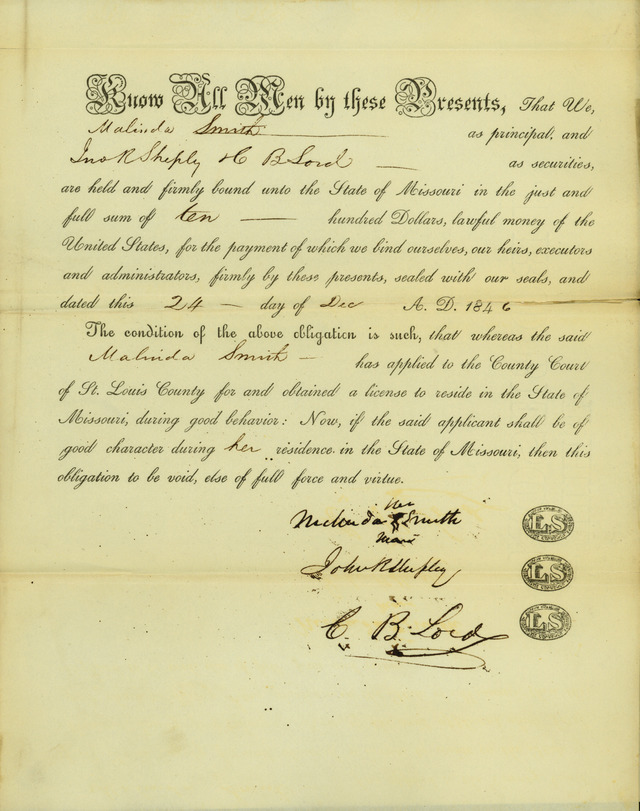 Know All Men by these Presents, That We,
Malinda Smith as principal, and
Jno R Sheply & C B Lord as securities,
are held and firmly bound unto the State of Missouri in the just and
full sum of ten hundred Dollars, lawful money of the
United States, for the payment of which we bind ourselves, our heirs, executors
and administrators, firmly by these presents, sealed with our seals, and
dated this 24 day of Dec A. D. 1846
The condition of the above obligation is such, that whereas the said
Malinda Smith has applied to the County Court
of St. Louis County for and obtained a license to reside in the State of
Missouri, during good behavior: Now, if the said applicant shall be of
good character during her residence in the State of Missouri, then this
obligation to be void, else of full force and virtue.
her
Melinda X Smith LS
mark
John R Shepley LS
C. B. Lord LS